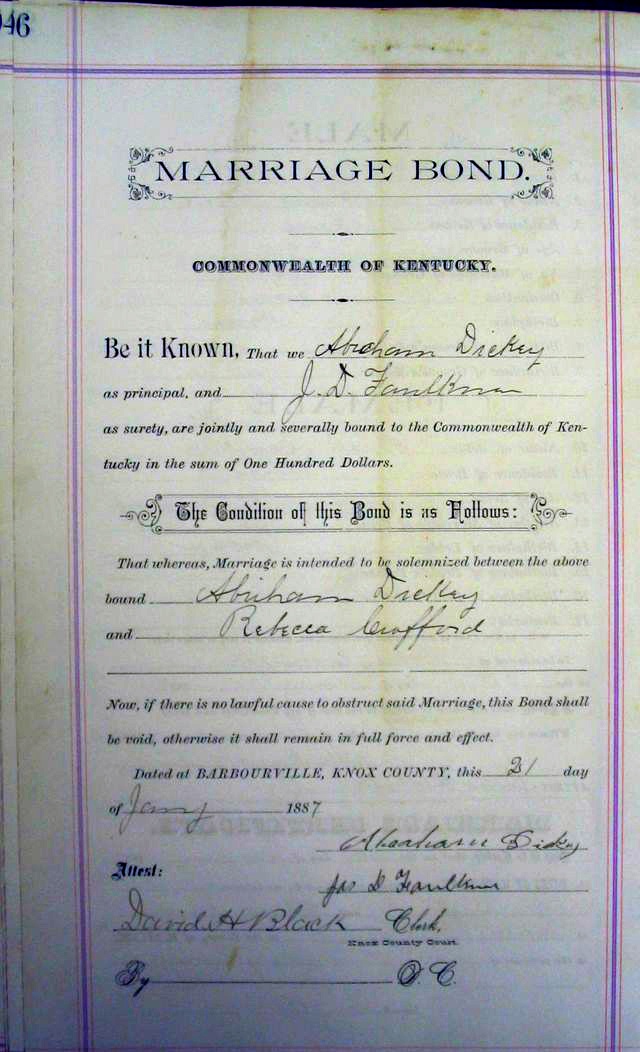 946
MARRIAGE BOND.
COMMONWEALTH OF KENTUCKY.
Be it Known, That we Abraham Dickey
as principal, and J. D. Faulkner
as surety, are jointly and severally bound to the Commonwealth of Ken-
tucky in the sum of One Hundred Dollars.
The Condition of this Bond is as Follows:
That whereas, Marriage is intended to be solemnized between the above
bound Abraham Dickey
and Rebecca Crofford
Now, if there is no lawful cause to obstruct said Marriage, this Bond shall
be void, otherwise it shall remain in full force and effect.
Dated at BARBOURVILLE, KNOX COUNTY, this 21 day
of Jany 1887
Abraham Dickey
Attest:
Jas D Faulkner
David H Black Clerk,
Knox County Court.
By D. C.